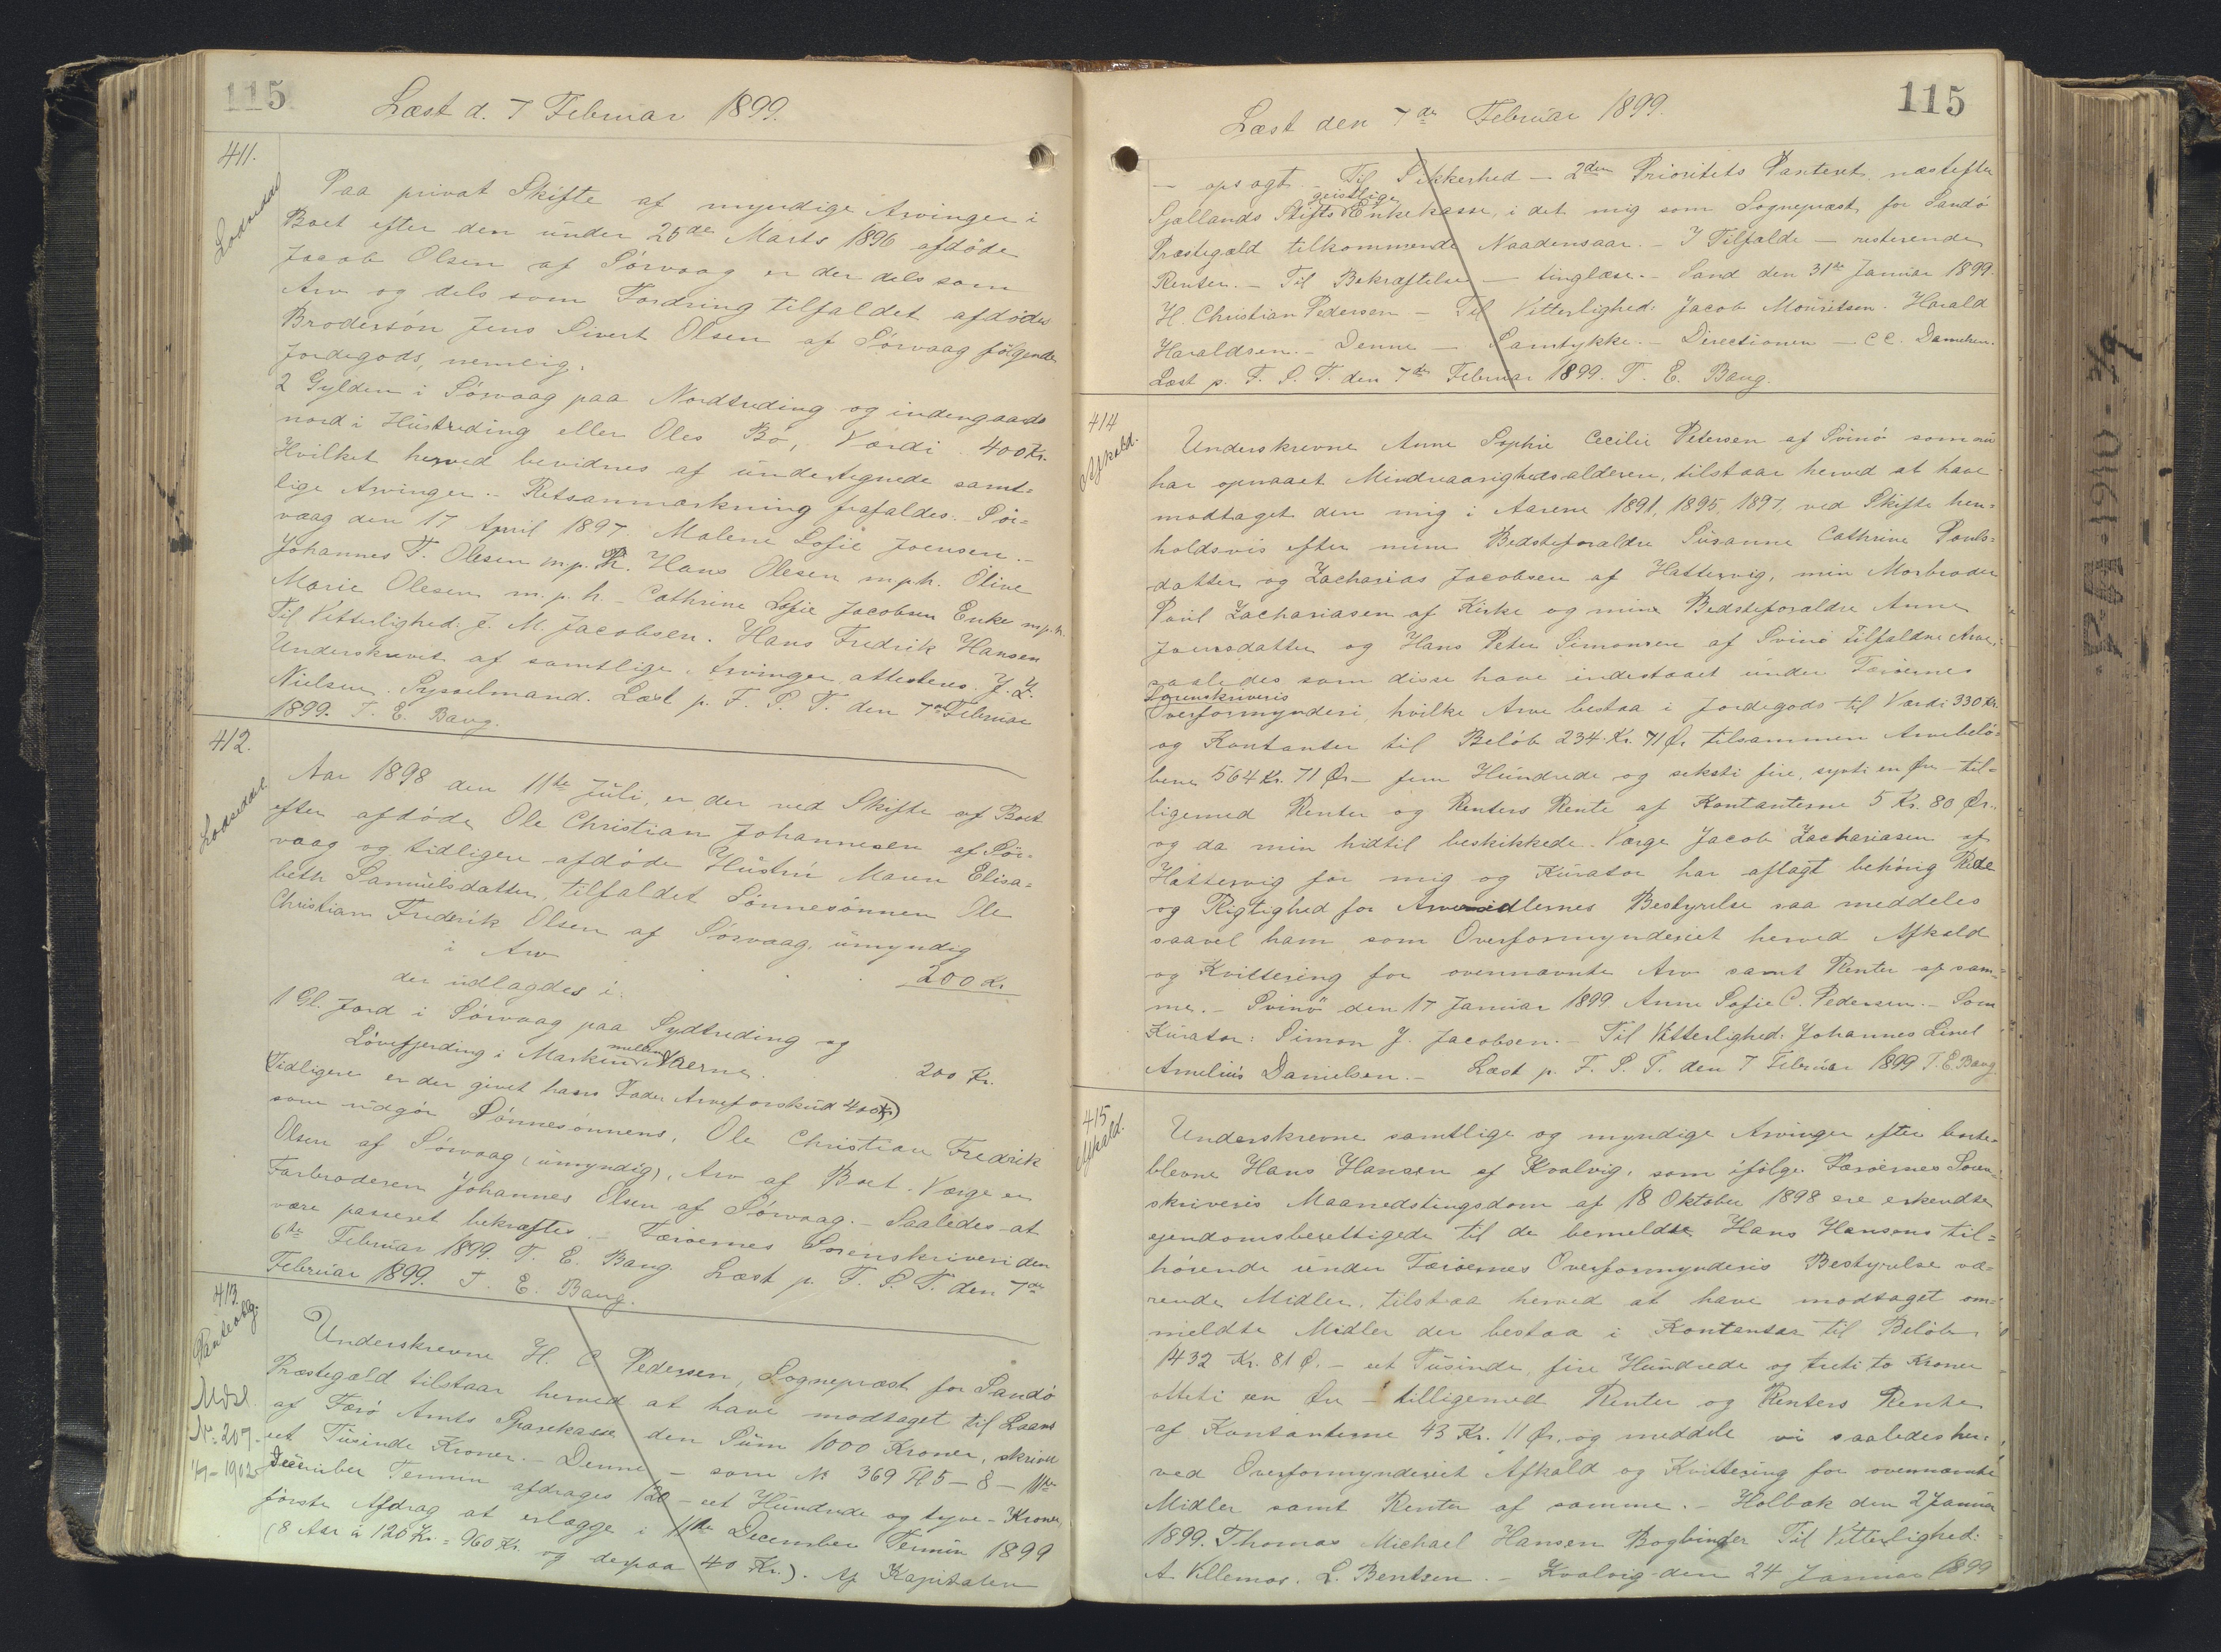 115
Læst d. 7 Februar 1899.
411.
Lodseddel
Paa privat Skifte af myndige Arvinger i
Boet efter den under 26de Marts 1896 afdöde
Jacob Olsen af Sörvaag er der dels som
Arv og dels som Fordring tilfaldet afdödes
Brodersön Jens Sivert Olsen af Sörvaag fölgende
Jordegods, nemlig:
2 Gylden i Sörvaag paa Nordtreding og indengaards
nord i Hústreding eller Oles Bö, Værdi 400 Kr.
Hvilket herved bevidnes af undertegnede samt=
lige Arvinger. - Retsanmærkning frafaldes. Sör=
vaag den 17 April 1897. Malene Sofie Joensen. -
Johannes F. Olesen m.p. h. Hans Olesen m.p.h. Oline
Marie Olesen m.p.h. - Cathrine Sofie Jacobsen Enke m.p.h.
Til Vitterlighed: J. M. Jacobsen. Hans Fredrik Hansen
Underskrevet af samtlige Arvinger attesteres. J. J.
Nielsen. Sysselmand. Læst p. F. S. T. den 7de Februar
1899. T. E. Bang.
412.
Lodseddel.
Aar 1898 den 11te Juli, er der ved Skifte af Boet
efter afdöde Ole Christian Johannesen af Sör=
vaag og tidligere afdöde Hustru Maren Elisa=
beth Samuelsdatter, tilfaldet Sönnesönnen Ole
Christian Frederik Olsen af Sörvaag, umyndig
i Arv . . . 200 Kr.
der udlagdes i:
1 Gl. Jord i Sörvaag paa Sydtreding og
Lövefjerding i Marken mellem Aaerne. 200 Kr.
(Tidligere er der givet hans Fader Arveforskud 400 Kr)
som udgör Sönnesönnens, Ole Christian Fredrik
Olsen af Sörvaag (umyndig), Arv af Boet. Værge er
Farbroderen Johannes Olsen af Sörvaag. - Saaledes at
være passeret bekræftes. - Færöernes Sorenskriveri den
6te Februar 1899. T. E. Bang. Læst p. F. S. T. den 7de
Februar 1899. T. E. Bang.
413.
Panteoblg.
Udsl.
No 207.
1/7 - 1902
Underskrevne H. C Pedersen, Sognepræst for Sandö
Præstegæld tilstaar herved at have modtaget til Laans
af Færö Amts Sparekasse den Sum 1000 Kroner, skriver
eet Tusinde Kroner. - Denne - som No 369 H 5 - 8 - 11te
December Termin afdrages 120 - eet Hundrede og tyve - Kroner,
förste Afdrag at erlægge i 11te December Termin 1899
(8 Aar à 120 Kr. = 960 Kr. og derpaa 40 Kr.). Af Kapitalen
115
Læst den 7de Februar 1899.
- opsagt - Til Sikkerhed - 2den Prioritets Panteret næstefter
Sjællands Stifts geistlige Enkekasse, i det mig som Sognepræst for Sandö
Præstegæld tilkommende Naadensaar. - I Tilfælde - resterende
Renter. - Til Bekræftelse - tinglæse. - Sand den 31te Januar 1899.
H. Christian Pedersen - Til Vitterlighed: Jacob Mouritsen. Harald
Haraldsen. - Denne - Samtykke. - Directionen - C C. Damchen.
Læst p. F. S. T. den 7de Februar 1899. T. E. Bang.
414
Afkald.
Underskrevne Anne Sophie Cecilie Petersen af Svinö som nu
har opnaaet Mindreaarighedsalderen, tilstaar herved at have
modtaget den mig i Aarene 1891, 1895, 1897, ved Skifte hen=
holdsvis efter mine Bedsteforældre Susanne Cathrine Pouls=
datter og Zacharias Jacobsen af Hattervig, min Morbroder
Poul Zachariasen af Kirke og mine Bedsteforældre Anne
Joensdatter og Hans Peter Simonsen af Svinö tilfaldne Arve
saaledes som disse have indestaaet under Færöernes
Sorenskriveris
Overformynderi, hvilke Arve bestaa i Jordegods til Værdi 330 Kr.
og Kontanter til Belöb 234 Kr. 71 Ör. tilsammen Arvebelö=
bene 564 Kr. 71 Ör - fem Hundrede og seksti fire, syvti en Öre - til=
ligemed Renter og Renters Rente af Kontanterne 5 Kr. 80 Ör.
og da min hidtil beskikkede Værge Jacob Zachariasen af
Hattervig for mig og Kurator har aflagt behörig Rede
og Rigtighed for Arvemidlernes Bestyrelse saa meddeles
saavel ham som Overformynderiet herved Afkald
og Kvittering for ovennævnte Arv samt Renter af sam=
me. - Svinö den 17 Januar 1899 Anne Sofie C. Pedersen. - Som
Kurator: Simon J. Jacobsen. - Til Vitterlighed: Johannes Linet
Amelius Danielsen. - Læst p. F. S. T. den 7 Februar 1899 T. E. Bang
415
Afkald.
Underskrevne samtlige og myndige Arvinger efter borte=
blevne Hans Hansen af Kvalvig, som ifölge Færöernes Soren=
skriveris Maanedstingsdom af 18 Oktober 1898 ere erkendte
ejendomsberettigede til de bemeldte Hans Hansens til=
hörende under Færöernes Overformynderis Bestyrelse væ=
rende Midler, tilstaa herved at have modtaget om=
meldte Midler der bestaa i Kontanter til Belöb
1432 Kr. 81 Ö. - eet Tusinde, fire Hundrede og treti to Kroner
otteti en Öre - tilligemed Renter og Renters Rente
af Kontanterne 43 Kr. 11 Ör, og meddele vi saaledes her=
ved Overformynderiet Afkald og Kvittering for ovennævnte
Midler samt Renter af samme. - Holbæk den 2 Januar
1899. Thomas Michael Hansen Bogbinder Til Vitterlighed:
A Villemos. L. Bentsen. - Kvalvig den 24 Januar 1899